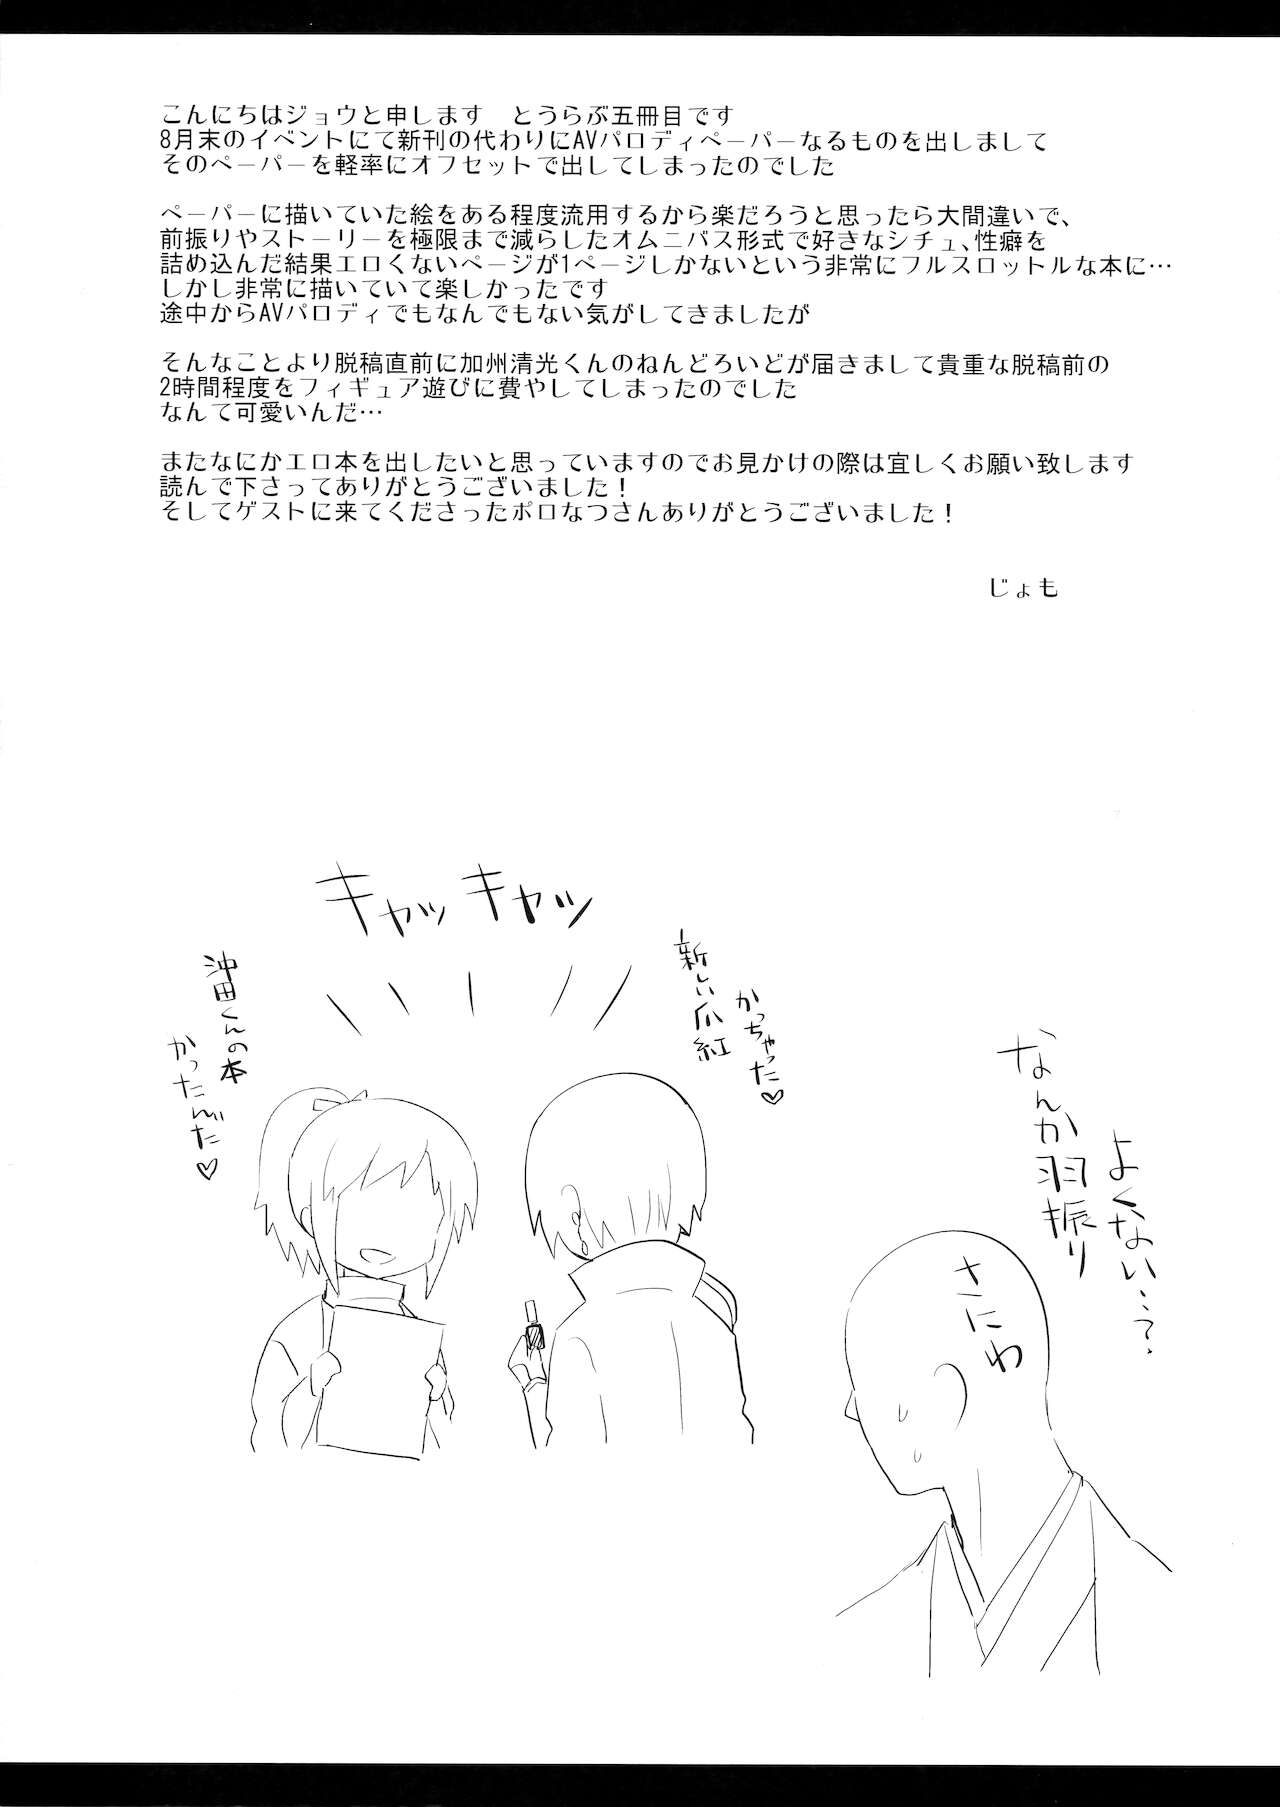 こんにちはジョウと申します　とうらぶ五冊目です
8月末のイベントにて新刊の代わりにAVパロディペーパーなるものを出しまして
そのペーパーを軽率にオフセットで出してしまったのでした
ペーパーに描いていた絵をある程度流用するから楽だろうと思ったら大間違いで、
前振りやストーリーを極限まで減らしたオムニバス形式で好きなシチュ、性癖を
詰め込んだ結果エロくないページが1ページしかないという非常にフルスロットルな本に…
しかし非常に描いていて楽しかったです
途中からAVパロディでもなんでもない気がしてきましたが
そんなことより脱稿直前に加州清光くんのねんどろいどが届きまして貴重な脱稿前の
2時間程度をフィギュア遊びに費やしてしまったのでした
なんて可愛いんだ…
またなにかエロ本を出したいと思っていますのでお見かけの際は宜しくお願い致します
読んで下さってありがとうございました！
そしてゲストに来てくださったポロなつさんありがとうございました！
じょも
キャッキャッ
新しい爪紅
かっちゃった♡
沖田くんの本
かったんだ♡
なんか羽振り
よくない…？
さにわ